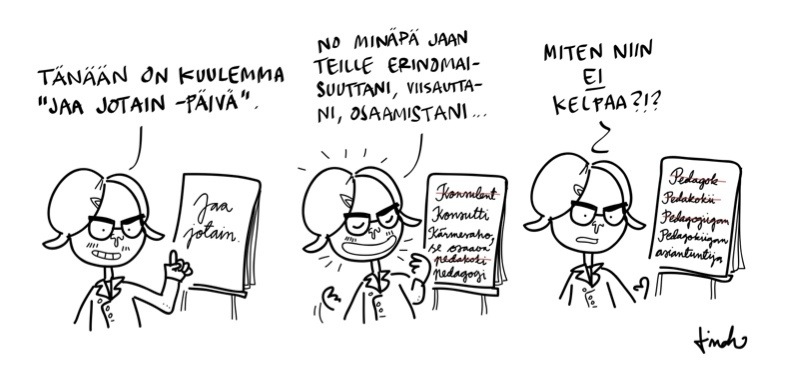 TÄNÄÄN ON KUULEMMA
"JAA JOTAIN -PÄIVÄ".
Jaa
jotain.
NO MINÄPÄ JAAN
TEILLE ERINOMAI-
SUUTTANI, VIISAUTTA-
NI, OSAAMISTANI...
Konsulent
Konsutti
Kärmeraho,
se osaava
pedakoki
pedagogi
MITEN NIIN
EI
KELPAA?!?
Pedagok
Pedakokii
Pedagogiigan
Pedagokiigan
asiantuntija